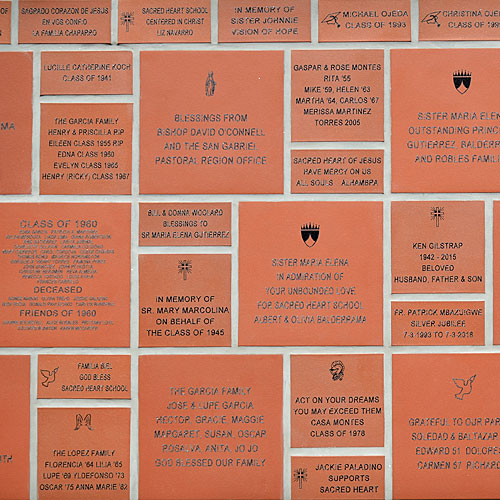 SAGRADO CORAZON DE JESUS,
EN VOS CONFIO
LA FAMILIA CHAPARRO
SACRED HEART SCHOOL
CENTERED IN CHRIST
LIZ NAVARRO
IN MEMORY OF
SISTER JOHNNIE
VISION OF HOPE
MICHAEL OJEDA
CLASS OF 1993
CHRISTINA OJEDA
CLASS OF 1995
LUCILLE CATHERINE KOCH
CLASS OF 1941
THE GARCIA FAMILY
HENRY & PRISCILLA RIP
EILEEN CLASS 1955 RIP
EDNA CLASS 1960
EVELYN CLASS 1965
HENRY (RICKY) CLASS 1967
BLESSINGS FROM
BISHOP DAVID O'CONNELL
AND THE SAN GABRIEL
PASTORAL REGION OFFICE
GASPAR & ROSE MONTES
RITA '55
MIKE '59, HELEN '63
MARTHA '64, CARLOS '67
MERISSA MARTINEZ
TORRES 2005
SACRED HEART OF JESUS
HAVE MERCY ON US
ALL SOULS ALHAMBRA
SISTER MARIA ELENA
OUTSTANDING PRINC
GUTIERREZ, BALDERRA
AND ROBLES FAMILI
CLASS OF 1960
DECEASED
FRIENDS OF 1960
B.J. & DONNA WOOLARD
BLESSINGS TO
SR MARIA ELENA GUTIERREZ
IN MEMORY OF
SR. MARY MARCOLINA
ON BEHALF OF
THE CLASS OF 1945
SISTER MARIA ELENA
IN ADMIRATION OF
YOUR UNBOUNDED LOVE
FOR SACRED HEART SCHOOL
ALBERT & OLIVIA BALDERRAMA
KEN GILSTRAP
1942 - 2015
BELOVED
HUSBAND, FATHER & SON
FR. PATRICK MBAZUIGWE
SILVER JUBILEE
7-3-1993 TO 7-3-2018
FAMILIA B.E.L.
GOD BLESS
SACRED HEART SCHOOL
THE LOPEZ FAMILY
FLORENCIA '64 LILIA '65
LUPE '69 YLDEFONSO '73
OSCAR '75 ANNA MARIE '82
THE GARCIA FAMILY
JOSE & LUPE GARCIA
HECTOR, GRACIE, MAGGIE
MARGARET, SUSAN, OSCAR
ROSALVA, ANITA, JO JO
GOD BLESSED OUR FAMILY
ACT ON YOUR DREAMS
YOU MAY EXCEED THEM
CASA MONTES
CLASS OF 1978
JACKIE PALADINO
SUPPORTS
SACRED HEART
GRATEFUL TO OUR PAR
SOLEDAD & BALTAZAR
EDWARD 51, DOLORES
CARMEN 57, RICHARD